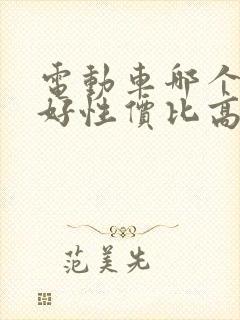 電動車哪个
好性價比高
范美先